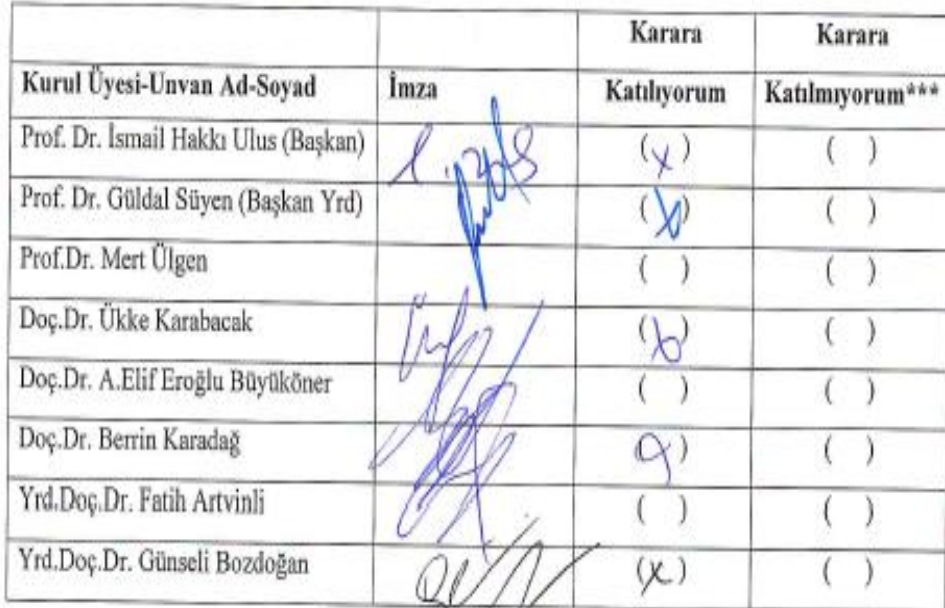 Karara Karara
Kurul Üyesi-Unvan Ad-Soyad İmza Katılıyorum Katılmıyorum***
Prof. Dr. İsmail Hakkı Ulus (Başkan) (x) ( )
Prof. Dr. Güldal Süyen (Başkan Yrd) (x) ( )
Prof.Dr. Mert Ülgen ( ) ( )
Doç.Dr. Ükke Karabacak (x) ( )
Doç.Dr. A.Elif Eroğlu Büyüköner ( ) ( )
Doç.Dr. Berrin Karadağ (x) ( )
Yrd.Doç.Dr. Fatih Artvinli ( ) ( )
Yrd.Doç.Dr. Günseli Bozdoğan (x) ( )